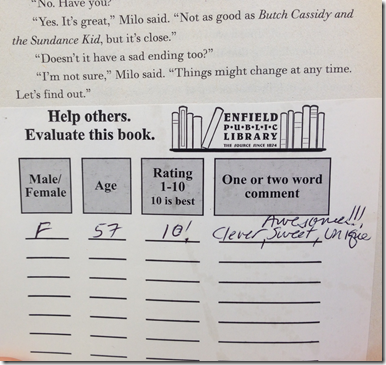 "No. Have you?"
"Yes. It's great," Milo said. "Not as good as Butch Cassidy and
the Sundance Kid, but it's close."
"Doesn't it have a sad ending too?"
"I'm not sure," Milo said. "Things might change at any time.
Let's find out."
Help others.
Evaluate this book.
ENFIELD
P·U·B·L·I·C
LIBRARY
THE SOURCE SINCE 1874
Male/
Female
Age
Rating
1-10
10 is best
One or two word
comment
Awesome!!!
F 57 10! Clever, Sweet, Unique